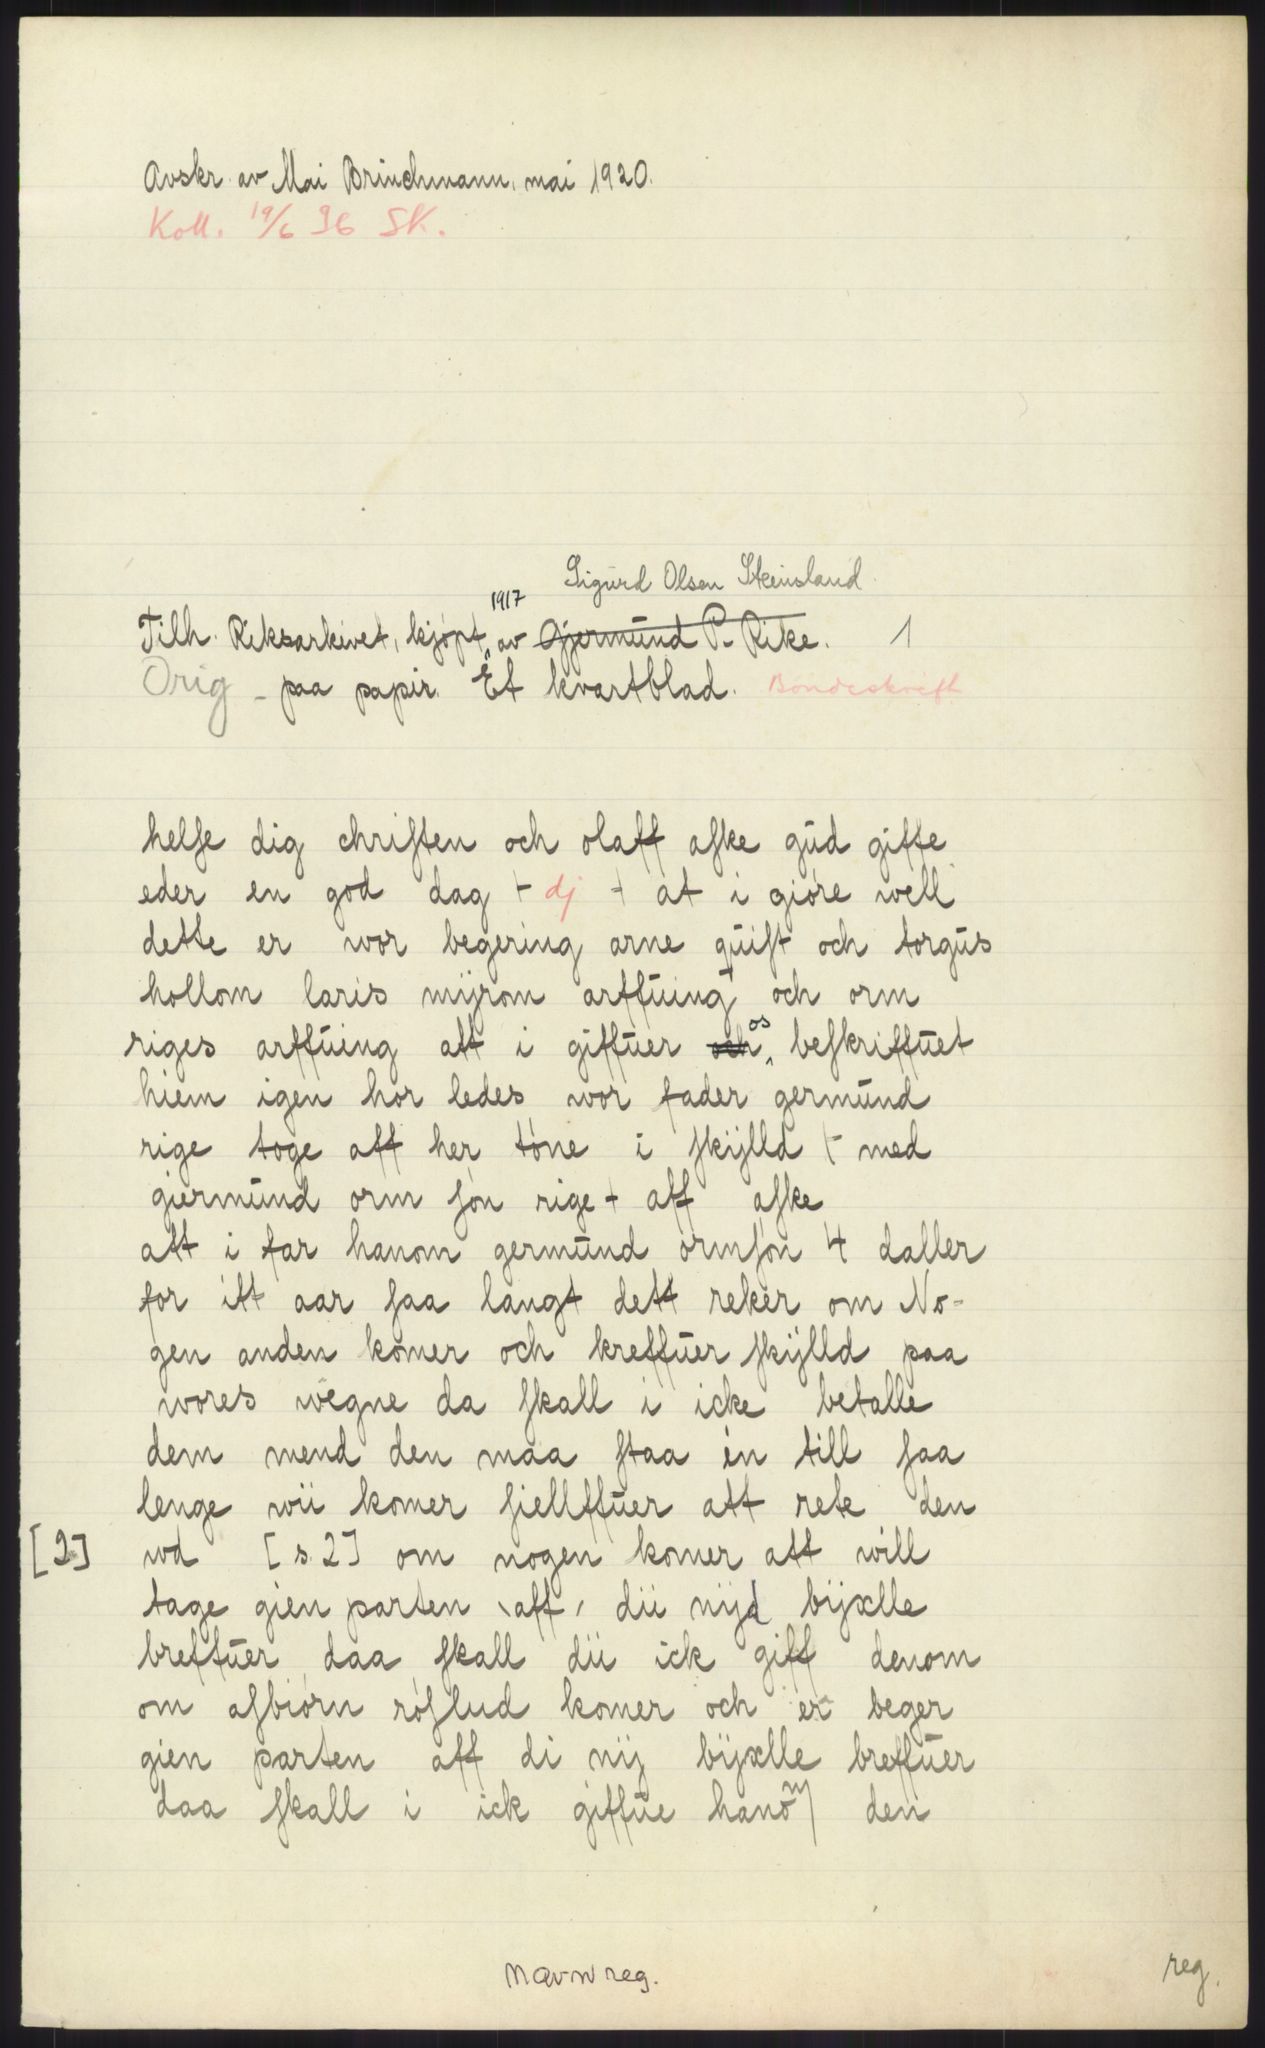 Avskr. av Mai Brinchmann, mai 1920.
Koll. 19/6 36 SK.
Sigurd Olsen Steinsland.
1917
Tilh. Riksarkivet, kjøpt av Gjermund P. Rike. 1
Orig – paa papir. Et kvartblad. Bondeskrift
helse dig christen och olaff aske gud giffe
eder en god dag + dj + at i giøre well
dette er wor begering arne quist och torgus
hollom laris myrom arffuing och orm
riges arffuing att i giffuer och os beskriffuet
hiem igen hor ledes wor fader germund
rige toge aff her tøne i skylld + med
giermund orm søn rige + aff aske
att i far hanom germund ormsøn 4 daller
for itt aar saa langt dett reker om No-
gen anden komer och kreffuer skylld paa
wores wegne da skall i icke betalle
dem mend den maa staa in till saa
lenge wii komer siellffuer att rek den
[2] wd [s. 2] om nogen komer att will
tage gien parten aff dii nyd byxlle
breffuer daa skall dii ick giff denom
om asbiørn røslud komer och er beger
gien parten aff di nij byxlle breffuer
daa skall i ick giffue hanom den
Navnreg.
reg.